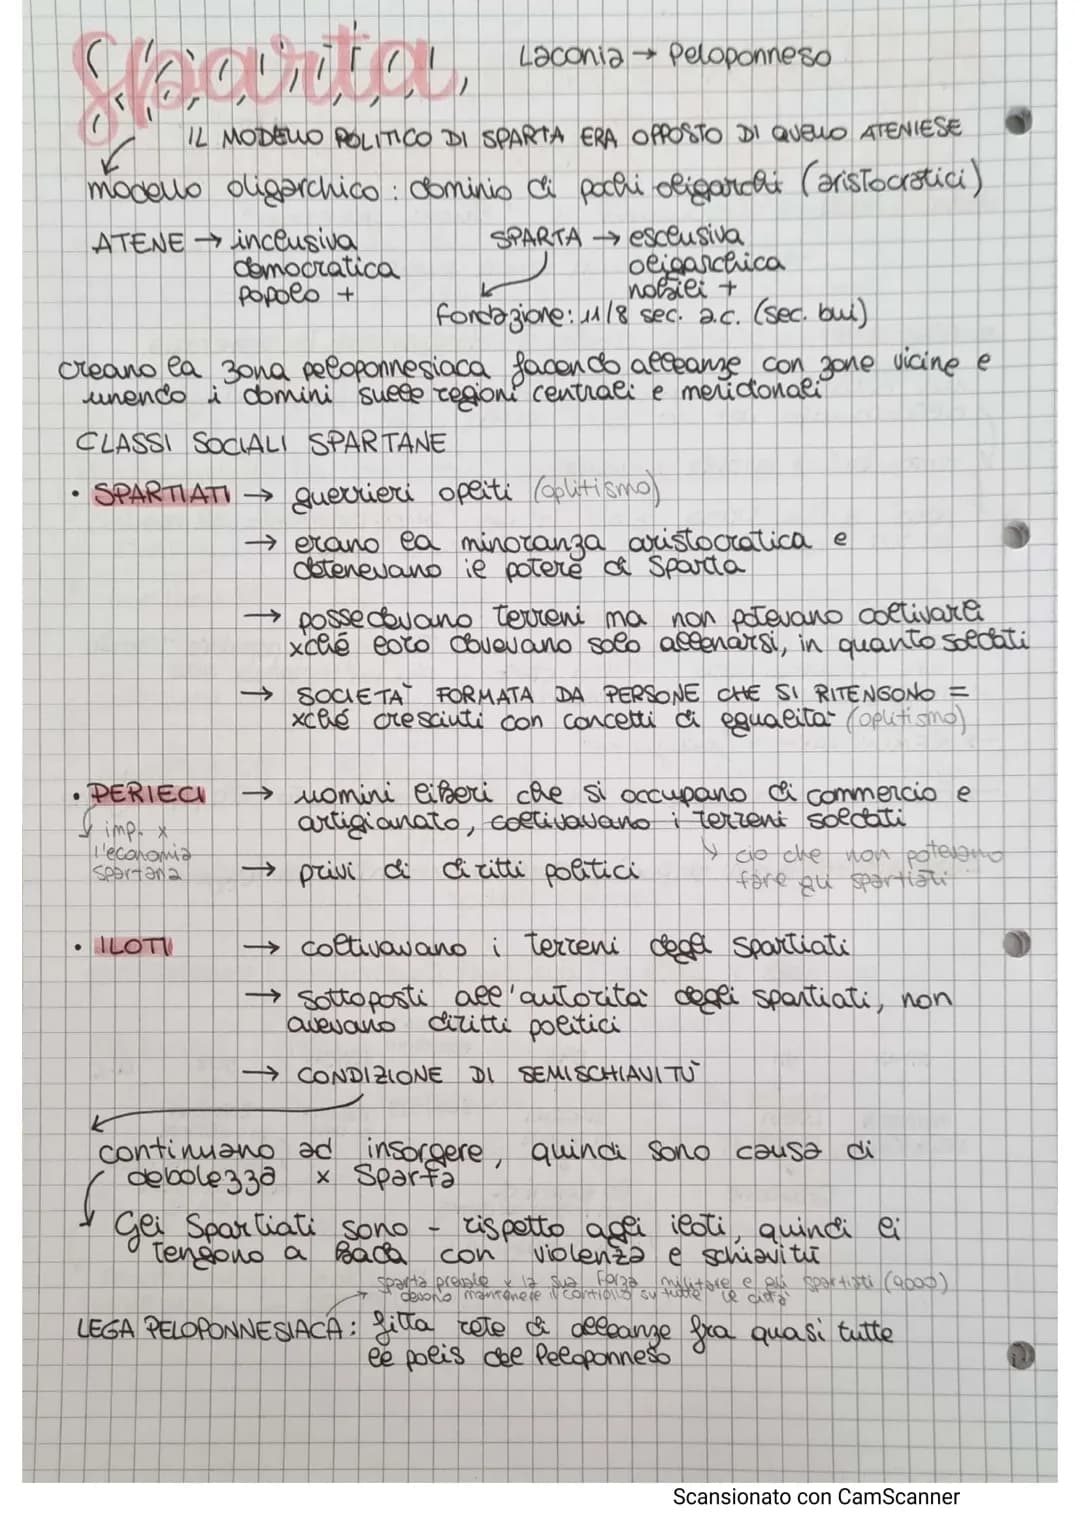 Sparta
Laconia → Peloponneso
IL MODELLO POLITICO DI SPARTA ERA OPPOSTO DI QUELLO ATENIESE
modello oligarchico: dominio di pochi oligarchi (aristocratici)
ATENE → inclusiva
democratica
popolo +
SPARTA → esclusiva
oligarchica
nobili +
fondazione: 11/8 sec. a.c. (sec. bui)
creano la zona peloponnesiaca facendo alleanze con zone vicine e
unendo i domini sulle regioni centrali e meridonali
CLASSI SOCIALI SPARTANE
• SPARTIATI → guerrieri opliti (oplitismo)
→ erano la minoranza aristocratica e
detenevano il potere di Sparta
→ possedevano terreni ma non potevano coltivarli
xché loro dovevano solo allenarsi, in quanto soldati
→ SOCIETA' FORMATA DA PERSONE CHE SI RITENGONO =
xché cresciuti con concetti di egualità (oplitismo)
• PERIECI → uomini liberi che si occupano di commercio e
artigianato, coltivavano i terreni soldati
imp. x
l'economia
spartana
ciò che non potevano
fare gli spartiati
→ privi di diritti politici
• ILOTI → coltivavano i terreni degli spartiati
→ sottoposti all'autorità degli spartiati, non
avevano diritti politici
→ CONDIZIONE DI SEMISCHIAVITU'
continuano ad insorgere, quindi sono causa di
debolezza x Sparta
Gli Spartiati sono - rispetto agli iloti, quindi li
tengono a bada con violenza e schiavitù
sparta prevale x la sua forza militare e gli spartiati (9000)
devono mantenere il controllo su tutte le città
LEGA PELOPONNESIACA: fitta rete di alleanze fra quasi tutte
le polis del Peloponneso
Scansionato con CamScanner